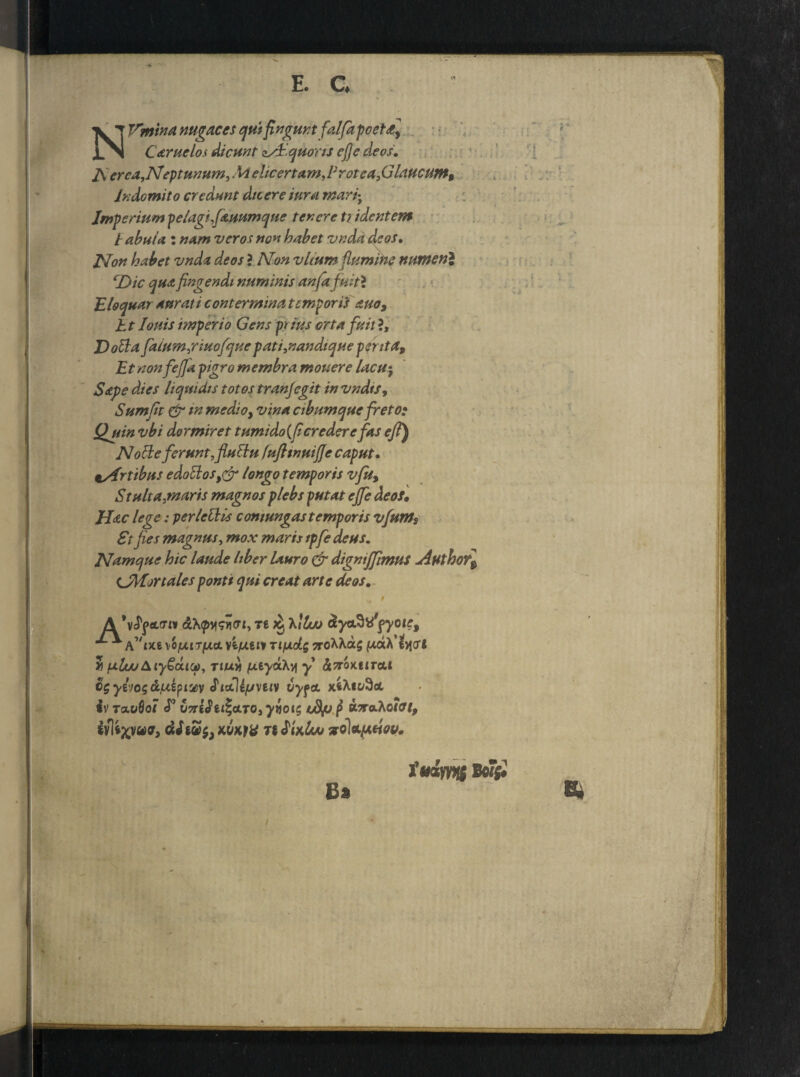 E. C.
NVmina nugaces qui fingunt falsa poetæ,
Cæruelos dicunt Æquoris esse deos.
Nerea, Neptunum, Melicertam, Protea, Glaucum,
Indomito credunt dicere iura mari;
Imperium pelagi, sæuumque tenere tridentem
Fabula: nam veros non habet vnda deos.
Non habet vnda deos? Non vllum flumine numen?
Dic quæ fingendi numinis ansa fuit?
Eloquar aurati contermina temporis æuo,
Et Iouis imperio Gens prius orta fuit?,
Docta salum, riuosque pati, nandique perita,
Et non fessa pigro membra mouere lacu;
Sæpe dies liquidis totos transegit in vndis,
Sumsit & in medio, vina cibumque freto:
Quin vbi dormiret tumido (si credere fas est)
Nocte ferunt, fluctu sustinuisse caput.
Artibus edoctos, & longo temporis vsu,
Stulta, maris magnos plebs putat esse deos.
Hæc lege: perlectis coniungas temporis vsum,
Et fies magnus, mox maris ipse deus.
Namque hic laude liber lauro & dignissimus Author,
Mortales ponti qui creat arte deos.
Ἀνδράσιν ἀλφηςῆσι, τε καὶ λίην ἀγαθυργοῖς,
Αἴκε νόμισμα νέμειν τιμὰς πολλὰς μάλ' ἔησι
ἢ μὴν Διγβαίῳ, τιμὴ μεγάλη γ' ἀπόκειται
ὃς γένος ἀμέριων διατέμνειν ὑγρὰ κέλευθα
ἐν ταυθοῖ δ' ὑπέδειξατο, γήοις ὡς παρ' ἁπαλοῖσι,
ἐντέχνως, ἀδεῶς, κύκνυ τε δίκην ποταμείου.
Ἰωάννης Βοῖς.
B2
E.